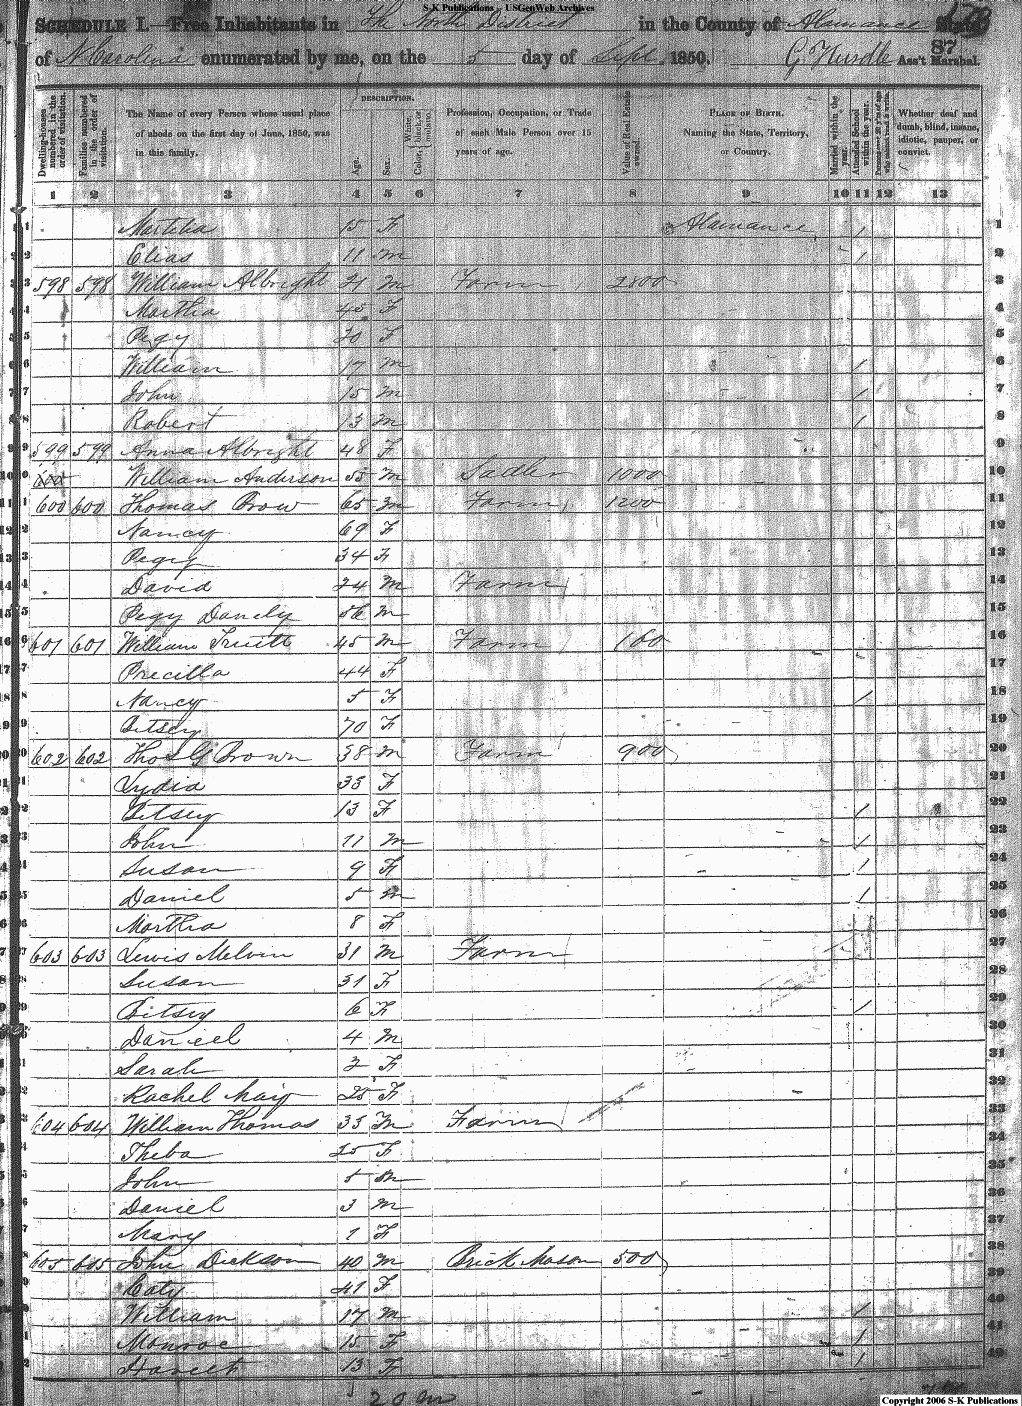 S-K Publications - USGenWeb Archives
SCHEDULE I.—Free Inhabitants in The North District in the County of Alamance State 173
of N Carolina enumerated by me, on the 5 day of Sept 1850. G Hurdle Ass't Marshal. 87
Dwelling-houses numbered in the order of visitation. Families numbered in the order of visitation. The Name of every Person whose usual place of abode on the first day of June, 1850, was in this family. DESCRIPTION. Age. Sex. Color, White, black or mulatto. Profession, Occupation, or Trade of each Male Person over 15 years of age. Value of Real Estate owned. PLACE OF BIRTH. Naming the State, Territory, or Country. Married within the year. Attended School within the year. Persons over 20 y'rs of age who cannot read & write. Whether deaf and dumb, blind, insane, idiotic, pauper, or convict.
1 2 3 4 5 6 7 8 9 10 11 12 13
1 15 F Alamance 1 1
2 Elias 11 m 1 2
3 598 598 William Albright M Farm 3
4 Martha 45 F 4
5 Pegy 20 F 5
6 William 17 m 1 6
7 John 15 m 1 7
8 Robert 13 m 1 8
9 599 599 Anna Albright 48 F 9
10 600 William Anderson 55 M Sadler 1000 10
11 600 600 Thomas Brow 65 m Farm 1200 11
12 Nancy 69 F 12
13 Pegy 34 F 13
14 David 24 M Farm 14
15 Pegy Dandy 56 m 15
16 601 601 William Truitt 45 M Farm 160 16
17 Precilla 44 F 17
18 Nancy 5 F 1 18
19 Betsey 70 F 19
20 602 602 Thos G Brown 38 m Farm 900 20
21 Lydia 35 F 21
22 Betsey 13 F 1 22
23 John 11 M 1 23
24 Susan 9 F 1 24
25 Daniel 5 m 1 25
26 Martha 8 F 26
27 603 603 Lewis Melvin 31 M Farm 27
28 Susan 31 F 28
29 Betsey 6 F 1 29
30 Daniel 4 M 30
31 Sarah 2 F 31
32 Rachel May 25 F 32
33 604 604 William Thomas 33 M Farm 33
34 Theba 25 F 34
35 John 5 m 35
36 Daniel 3 M 36
37 Mary 1 F 37
38 605 605 John Dickson 40 M Brick Mason 500 38
39 Caty 41 F 39
40 William 17 M 1 40
41 Monroe 15 F 1 41
42 13 F 1 42
20 m
Copyright 2006 S-K Publications